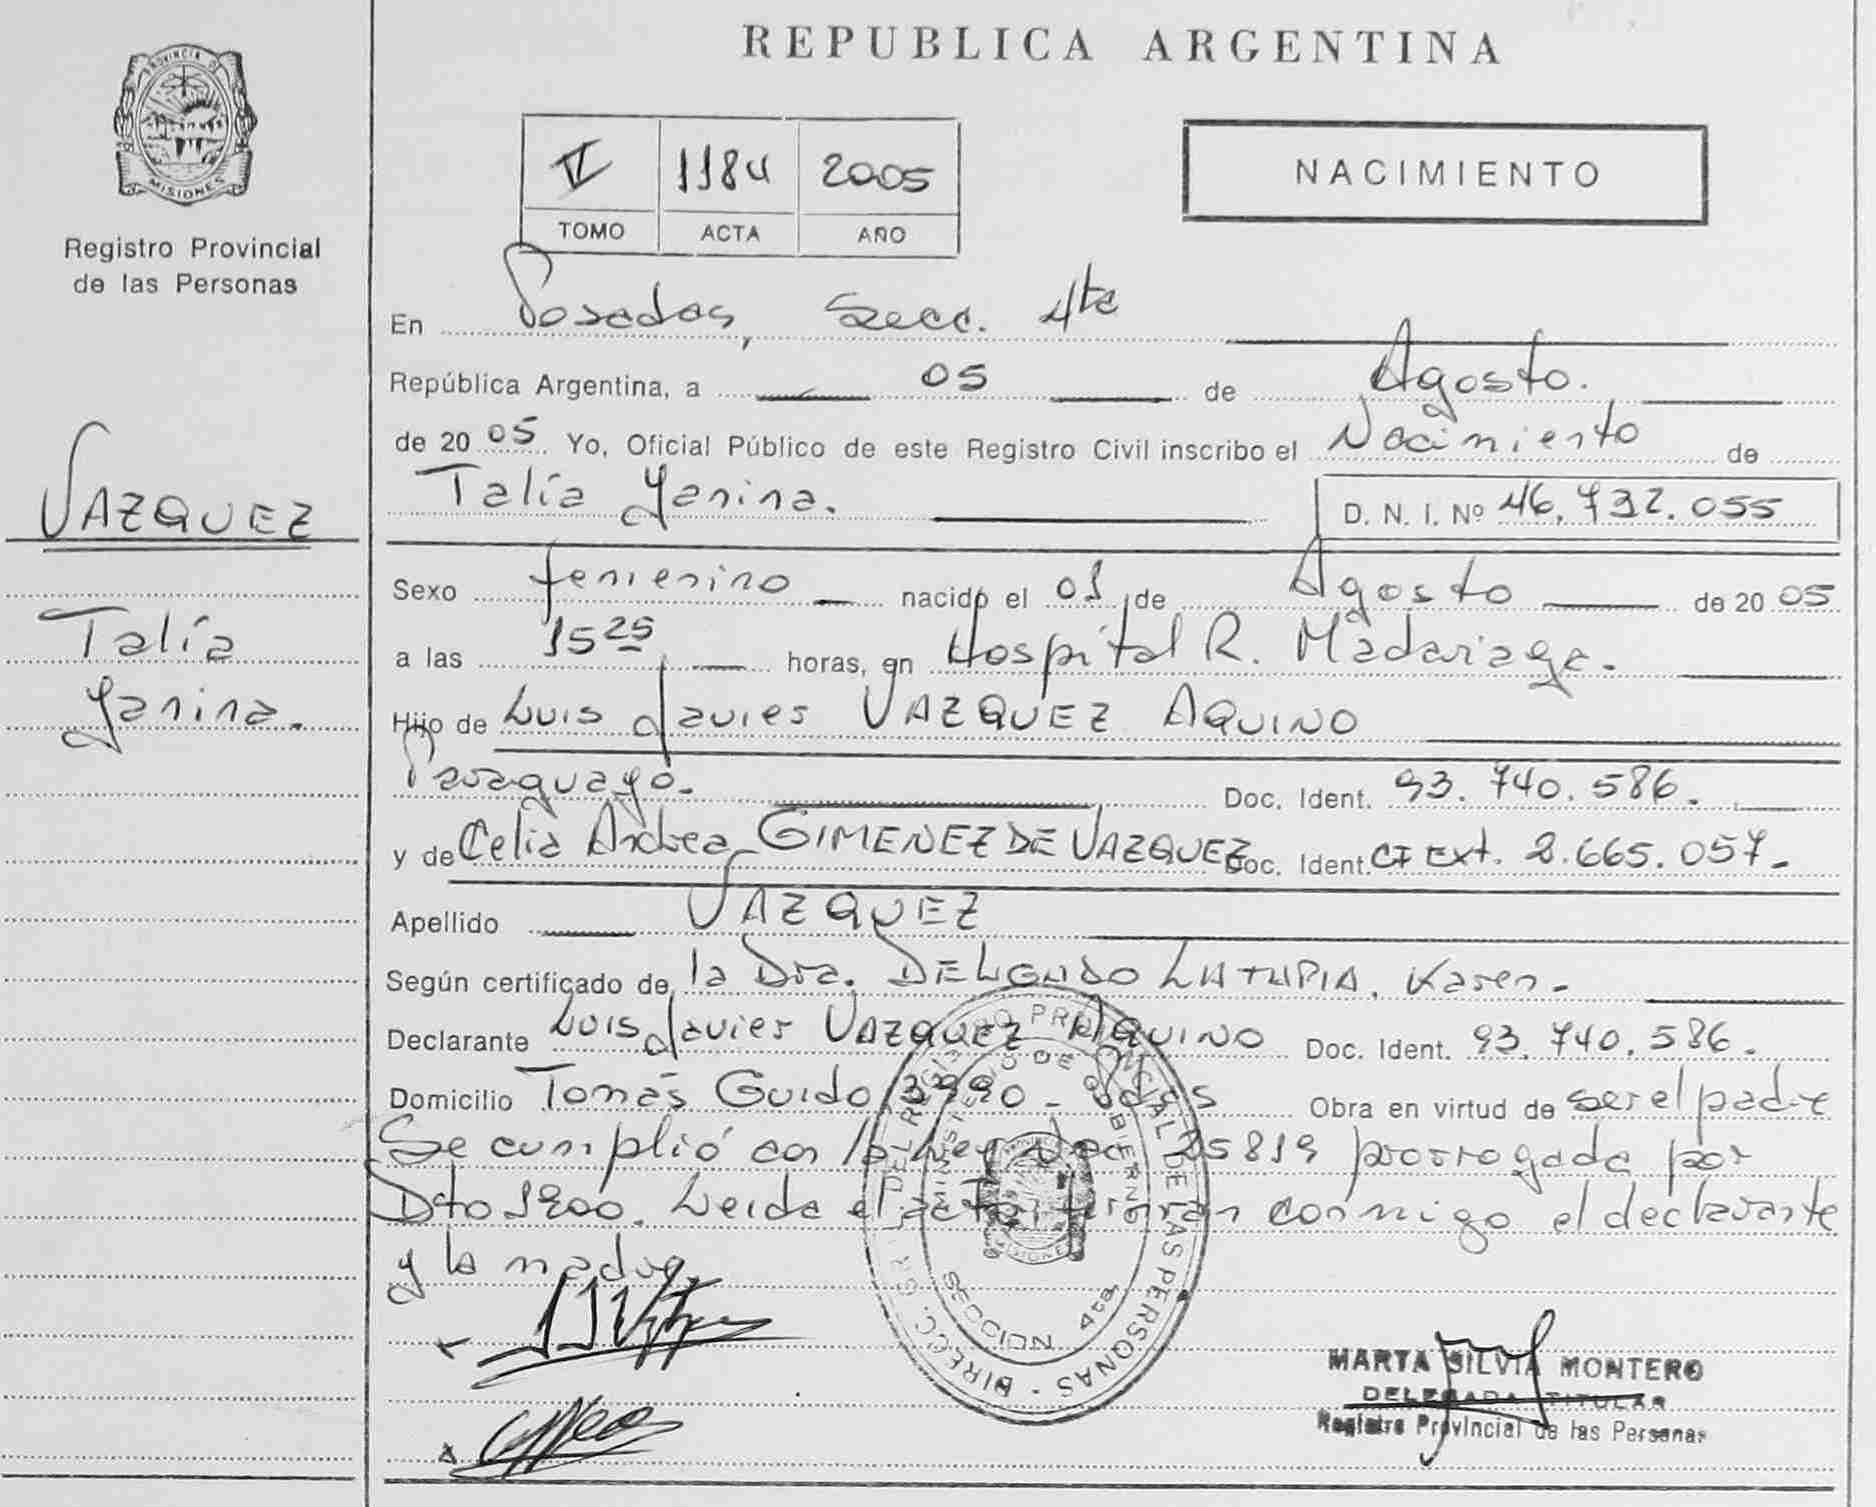 REPUBLICA ARGENTINA
PROVINCIA DE
MISIONES
Registro Provincial
de las Personas
VAZQUEZ
Talía
Yanina.
1184 2005
TOMO ACTA AÑO
NACIMIENTO
En Posadas, Secc. 4ta
República Argentina, a 05 de Agosto.
de 2005 Yo, Oficial Público de este Registro Civil inscribo el Nacimiento de
Talía Yanina.
D. N. I. Nº 46.732.055
Sexo femenino nacido el 01 de Agosto de 2005
a las 15 25 horas, en Hospital R. Madariaga.
Hijo de Luis Javier VAZQUEZ AQUINO
Paraguayo. Doc. Ident. 93.740.586.
y de Celia Andrea GIMENEZ DE VAZQUEZ Doc. Ident. CI Ext. 2.665.057.
Apellido VAZQUEZ
Según certificado de la Dra. DELGADO LATAPIA, Karen.
Declarante Luis Javier VAZQUEZ AQUINO Doc. Ident. 93.740.586.
Domicilio Tomás Guido 3990 - Pdas Obra en virtud de ser el padre
Se cumplió con la Ley Nac. 25819 prorrogada por
Dto 1900. Leida el acta, firman conmigo el declarante
y la madre.
DEL REGISTRO PROVINCIAL DE LAS PERSONAS
MINISTERIO DE GOBIERNO
SECCION 4ta.
MARTA SILVIA MONTERO
DELEGADA TITULAR
Registro Provincial de las Personas